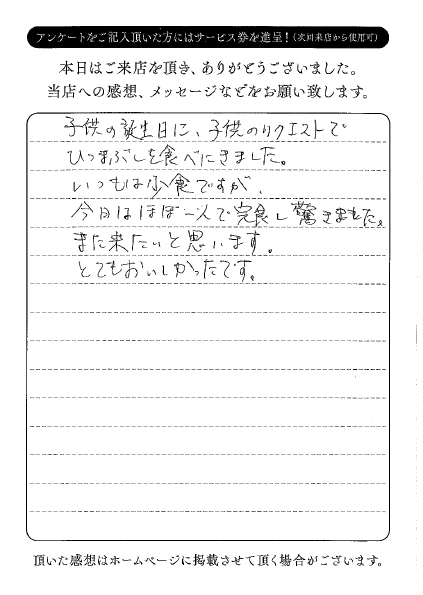 アンケートをご記入頂いた方にはサービス券を進呈！（次回来店から使用可）
本日はご来店を頂き、ありがとうございました。
当店への感想、メッセージなどをお願い致します。
子供の誕生日に、子供のリクエストで
ひつまぶしを食べにきました。
いつもは少食ですが、
今日はほぼ一人で完食し驚きました。
また来たいと思います。
とてもおいしかったです。
頂いた感想はホームページに掲載させて頂く場合がございます。